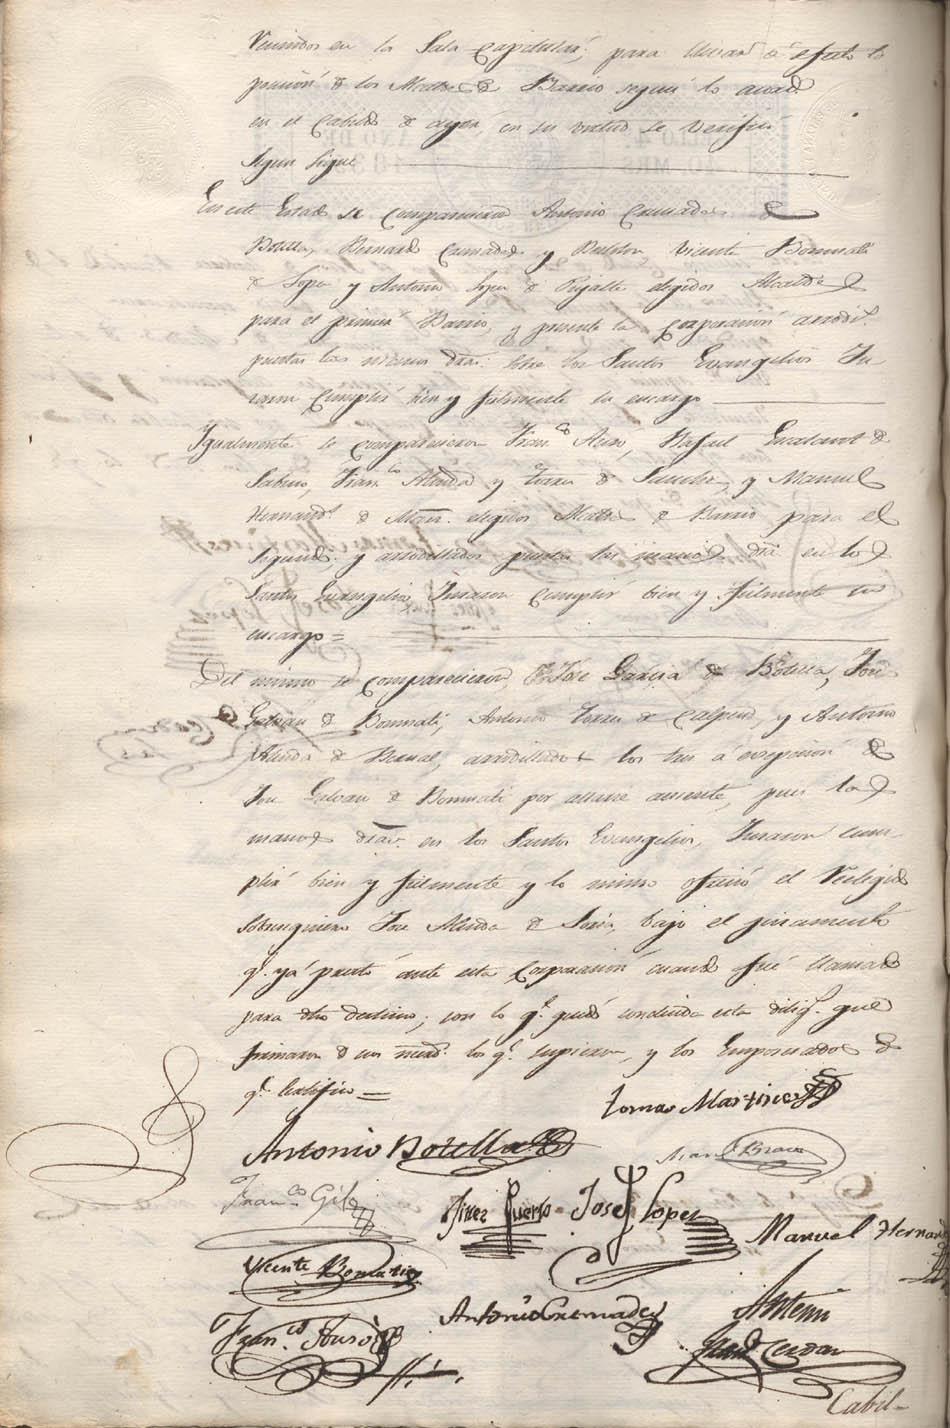 reunidos en la Sala Capitular, para llevar á efecto la
posesion de los Alcaldes de Barrio segun lo acord.º
en el Cabildo de ayer, en su virtud se verificó
segun sigue
En este Estado se comparecieron Antonio Cremades de
Botella, Bernardo Cremades y Beltran, Vicente Bonmatí
de Lopez y Antonio Lopez de elegidos Alcaldes
para el primer Barrio, y presente la Corporacion arrodill.
puestas las manos dras. sobre los Santos Evangelios Ju-
raron cumplir bien y fielmente su encargo
Igualmente se comparecieron Fran.co Asró, Rafael de
Sabino, Fran.co Almda y Torres de Sanchez, y Manuel
Hernand.z de Mtnz. elegidos Alcaldes de Barrio para el
Segundo, y arrodillados puestas las manos dras. en los
Santos Evangelios, Juraron cumplir bien y fielmente su
encargo =
Del mismo se comparecieron, José Garcia de Botella, José
Galvañ de Bonmatí, Antonio Torres de Calpena, y Antonio
Almda de Bernal, arrodillados los tres á ecepcion de
Jose Galvañ de Bonmatí por allarse ausente, pues las
manos dras. en los Santos Evangelios, Juraron cum-
plir bien y fielmente y lo mismo ofreció el Reelegido
Jose Almda de Soria, bajo el juramento
q.e ya prestó ante esta Corporacion cuando fué llamado
para otro destino; con lo q.e quedó concluida esta dilig.a que
firmaron de sus mrds. los q.e supieron, y los Emposesados de
q.e Certifico =
Tomas Martinez
Antonio Botella
Man.l Bravo
Fran.co Gil
Jinez Puerto
Josef Lopez
Manuel Hernan
Vicente Bonmati
Antonio Cremades
Antemi
Fran.co Asró
Cerdan
Cabil-